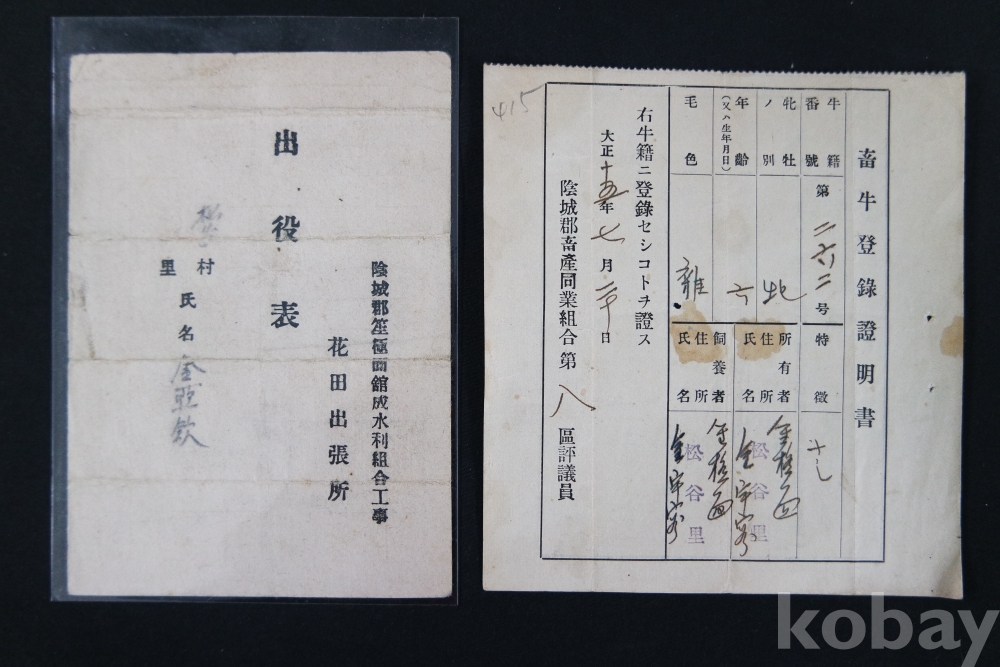 出役表
陰城郡笙極面館成水利組合工事
花田出張所
村
里
氏名 金
415
畜牛登錄證明書
牛籍番號 第二六二号 特徵 ナシ
牝ノ牡別 牝 所有者 住所 金旺面 松谷里 氏名 金
年齡(又ハ生年月日) 六
毛色 雜 飼養者 住所 金旺面 松谷里 氏名 金
右牛籍ニ登錄セシコトヲ證ス
大正十五年七月二十日
陰城郡畜產同業組合第八區評議員
kobay